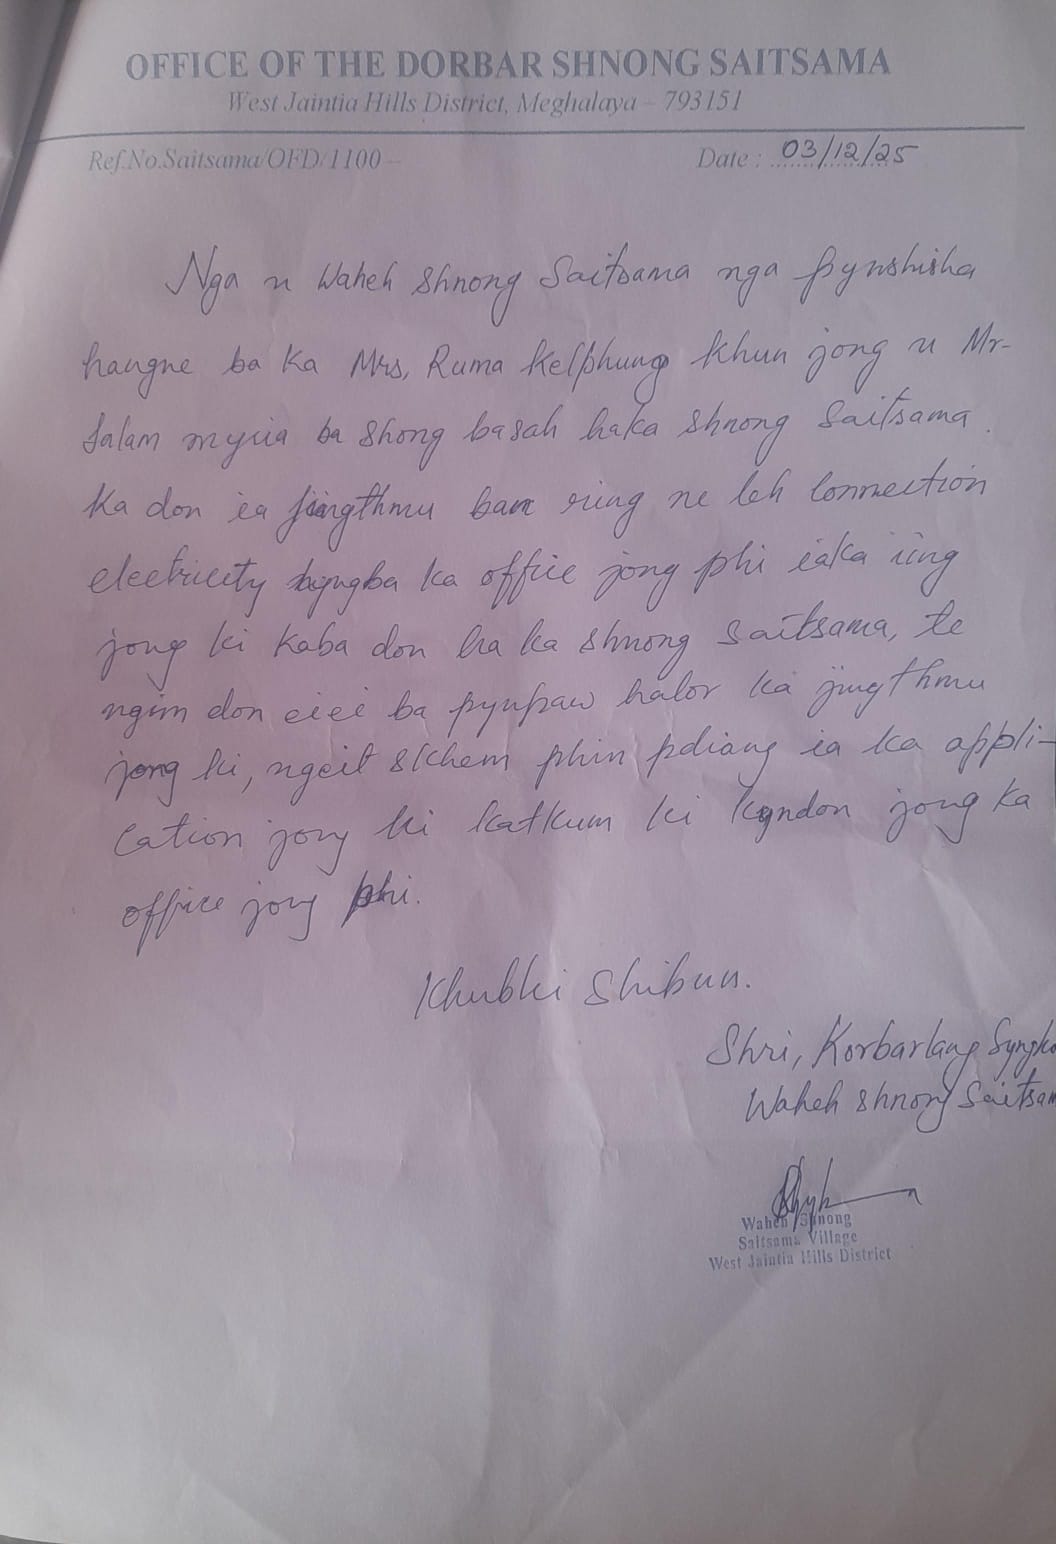 OFFICE OF THE DORBAR SHNONG SAITSAMA
West Jaintia Hills District, Meghalaya – 793151
Ref.No.Saitsama/OFD/1100 –
Date : 03/12/25
Nga u Waheh Shnong Saitsama nga pynshisha
hangne ba ka Mrs, Ruma Kelphung khun jong u Mr-
Salam myria ba shong basah haka shnong Saitsama.
Ka don ia jingthmu ban ring ne leh Connection
electricity lyngba ka office jong phi iaka iing
jong ki kaba don ha ka shnong Saitsama, te
ngim don eiei ba pynpaw halor ka jingthmu
jong ki, ngeit skhem phin pdiang ia ka appli-
cation jong ki katkum ki kyndon jong ka
office jong phi.
Khublei Shibun.
Shri, Korbarlang
Waheh Shnong
Waheh Shnong
Saitsama Village
West Jaintia Hills District